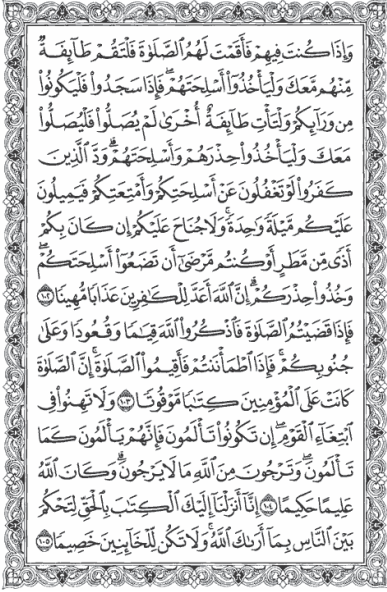 وَإِذَا كُنتَ فِيهِمْ فَأَقَمْتَ لَهُمُ ٱلصَّلَوٰةَ فَلْتَقُمْ طَآئِفَةٌ
مِّنْهُم مَّعَكَ وَلْيَأْخُذُوٓا۟ أَسْلِحَتَهُمْ فَإِذَا سَجَدُوا۟ فَلْيَكُونُوا۟
مِن وَرَآئِكُمْ وَلْتَأْتِ طَآئِفَةٌ أُخْرَىٰ لَمْ يُصَلُّوا۟ فَلْيُصَلُّوا۟
مَعَكَ وَلْيَأْخُذُوا۟ حِذْرَهُمْ وَأَسْلِحَتَهُمْ ۗ وَدَّ ٱلَّذِينَ
كَفَرُوا۟ لَوْ تَغْفُلُونَ عَنْ أَسْلِحَتِكُمْ وَأَمْتِعَتِكُمْ فَيَمِيلُونَ
عَلَيْكُم مَّيْلَةً وَٰحِدَةً ۚ وَلَا جُنَاحَ عَلَيْكُمْ إِن كَانَ بِكُمْ
أَذًى مِّن مَّطَرٍ أَوْ كُنتُم مَّرْضَىٰٓ أَن تَضَعُوٓا۟ أَسْلِحَتَكُمْ ۖ
وَخُذُوا۟ حِذْرَكُمْ ۗ إِنَّ ٱللَّهَ أَعَدَّ لِلْكَٰفِرِينَ عَذَابًا مُّهِينًا ١٠٢
فَإِذَا قَضَيْتُمُ ٱلصَّلَوٰةَ فَٱذْكُرُوا۟ ٱللَّهَ قِيَٰمًا وَقُعُودًا وَعَلَىٰ
جُنُوبِكُمْ ۚ فَإِذَا ٱطْمَأْنَنتُمْ فَأَقِيمُوا۟ ٱلصَّلَوٰةَ ۚ إِنَّ ٱلصَّلَوٰةَ
كَانَتْ عَلَى ٱلْمُؤْمِنِينَ كِتَٰبًا مَّوْقُوتًا ١٠٣ وَلَا تَهِنُوا۟ فِى
ٱبْتِغَآءِ ٱلْقَوْمِ ۖ إِن تَكُونُوا۟ تَأْلَمُونَ فَإِنَّهُمْ يَأْلَمُونَ كَمَا
تَأْلَمُونَ ۖ وَتَرْجُونَ مِنَ ٱللَّهِ مَا لَا يَرْجُونَ ۗ وَكَانَ ٱللَّهُ
عَلِيمًا حَكِيمًا ١٠٤ إِنَّآ أَنزَلْنَآ إِلَيْكَ ٱلْكِتَٰبَ بِٱلْحَقِّ لِتَحْكُمَ
بَيْنَ ٱلنَّاسِ بِمَآ أَرَىٰكَ ٱللَّهُ ۚ وَلَا تَكُن لِّلْخَآئِنِينَ خَصِيمًا ١٠٥